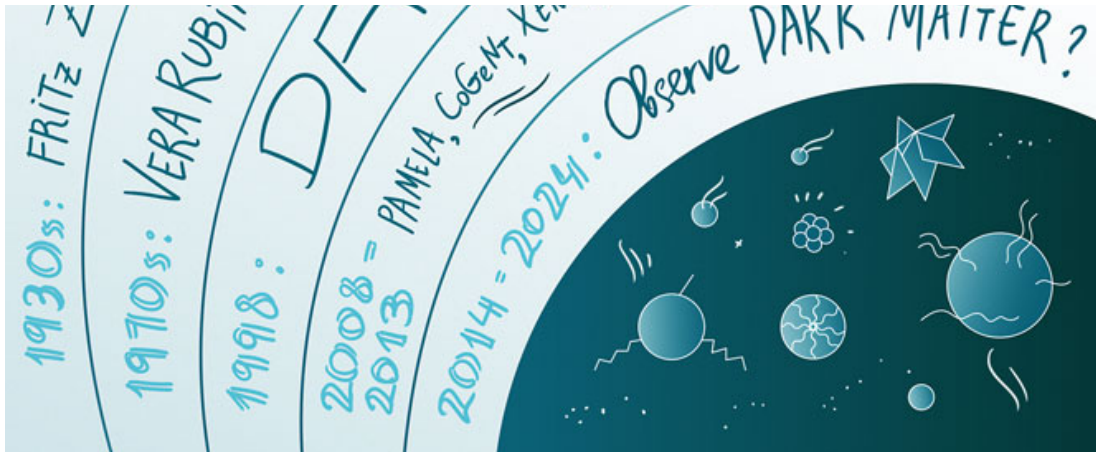 1930s: FRITZ Z
1970s: VERA RUBI
1998: DA
2008 = 2013 PAMELA, CoGeNT, XE
2014 = 2024: Observe DARK MATTER?